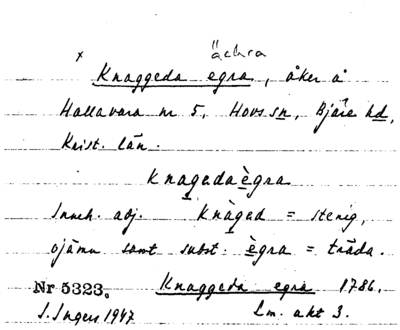 åckra
x Knaggeda egra, åker å
Hallavara nr 5, Hovs sn, Bjäre hd,
Krist. län.
knagedaègra
Inneh. adj. knàged = stenig,
ojämn samt subst. ègra = träda.
Nr 5323. Knaggeda egra 1786.
S. Ingers 1947 Lm. akt 3.